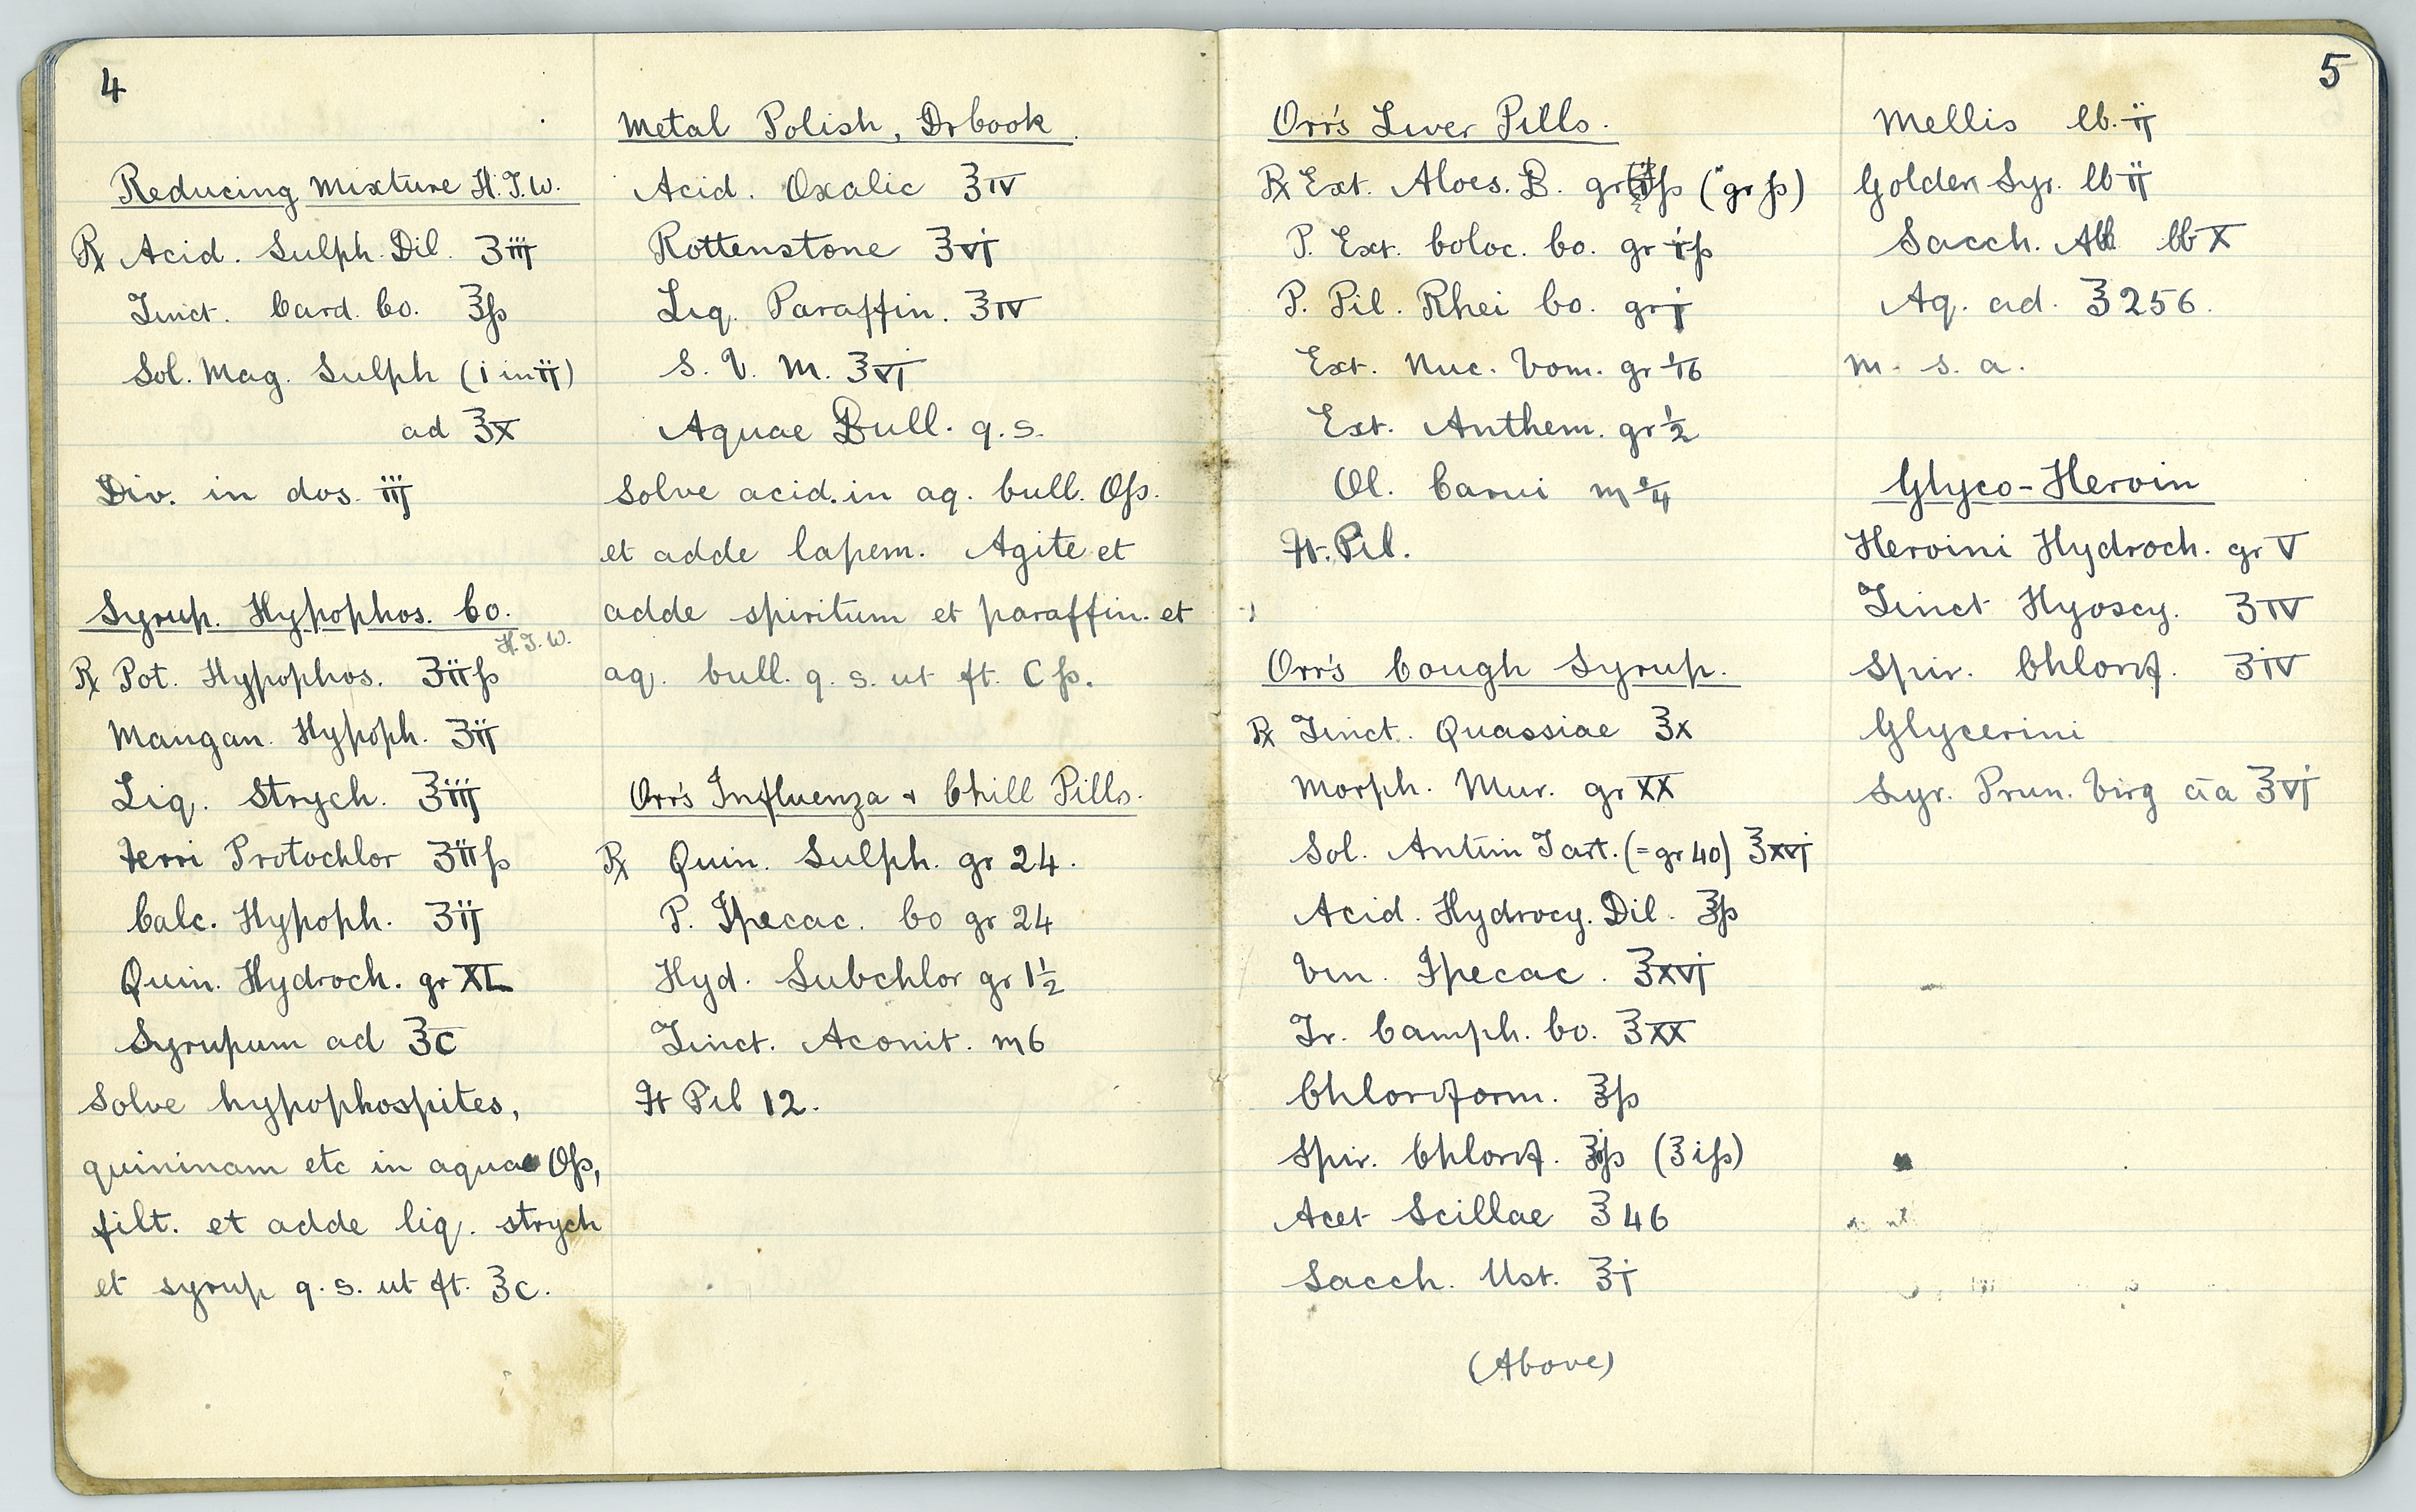 4
Reducing Mixture H.J.W.
℞ Acid. Sulph. Dil. ʒiij
Tinct. Card. Co. ℥ß
Sol. Mag. Sulph (i in ii)
ad ℥x
Div. in dos. iij
Syrup. Hypophos. Co.
H.J.W.
℞ Pot. Hypophos. ʒiiß
Mangan. Hypoph. ʒii
Liq. Strych. ℥iij
Ferri Protochlor ʒiiß
Calc. Hypoph. ʒij
Quin. Hydroch. gr XL
Syrupum ad ℥C
Solve hypophospites,
quininam etc in aqua Oß,
filt. et adde liq. strych
et syrup q.s. ut ft. ℥C.
Metal Polish, Drbook.
Acid. Oxalic ℥IV
Rottenstone ℥VI
Liq. Paraffin. ℥IV
S. V. M. ℥VI
Aquae Bull. q.s.
Solve acid. in aq. bull. Oß.
et adde lapem. Agite et
adde spiritum et paraffin. et
aq. bull. q.s. ut ft. Cß.
Orr's Influenza + Chill Pills.
℞ Quin. Sulph. gr 24.
P. Ipecac. Co gr 24
Hyd. Subchlor gr 1½
Tinct. Aconit. m 6
Ft Pil 12.
5
Orr's Liver Pills.
℞ Ext. Aloes. B. gr ß (gr ß)
P. Ext. Coloc. Co. gr iß
P. Pil. Rhei Co. gr j
Ext. Nuc. Vom. gr 1/16
Ext. Anthem. gr ½
Ol. Carui m
Ft. Pil.
Orr's Cough Syrup.
℞ Tinct. Quassiae ℥x
Morph. Mur. gr XX
Sol. Antim Tart. (= gr 40) ℥xvj
Acid. Hydrocy. Dil. ℥ß
Vin. Ipecac. ℥xvj
Tr. Camph. Co. ℥xx
Chloroform. ℥ß
Spir. Chlorof. ℥ß (ʒiß)
Acet Scillae ℥46
Sacch. Ust. ℥i
(Above)
Mellis lb. ii
Golden Syr. lb ii
Sacch. Alb lb X
Aq. ad. ℥256.
m. s. a.
Glyco-Heroin
Heroini Hydroch. gr V
Tinct Hyoscy. ʒIV
Spir. Chlorof. ʒiV
Glycerini
Syr. Prun. Virg āa ℥VI